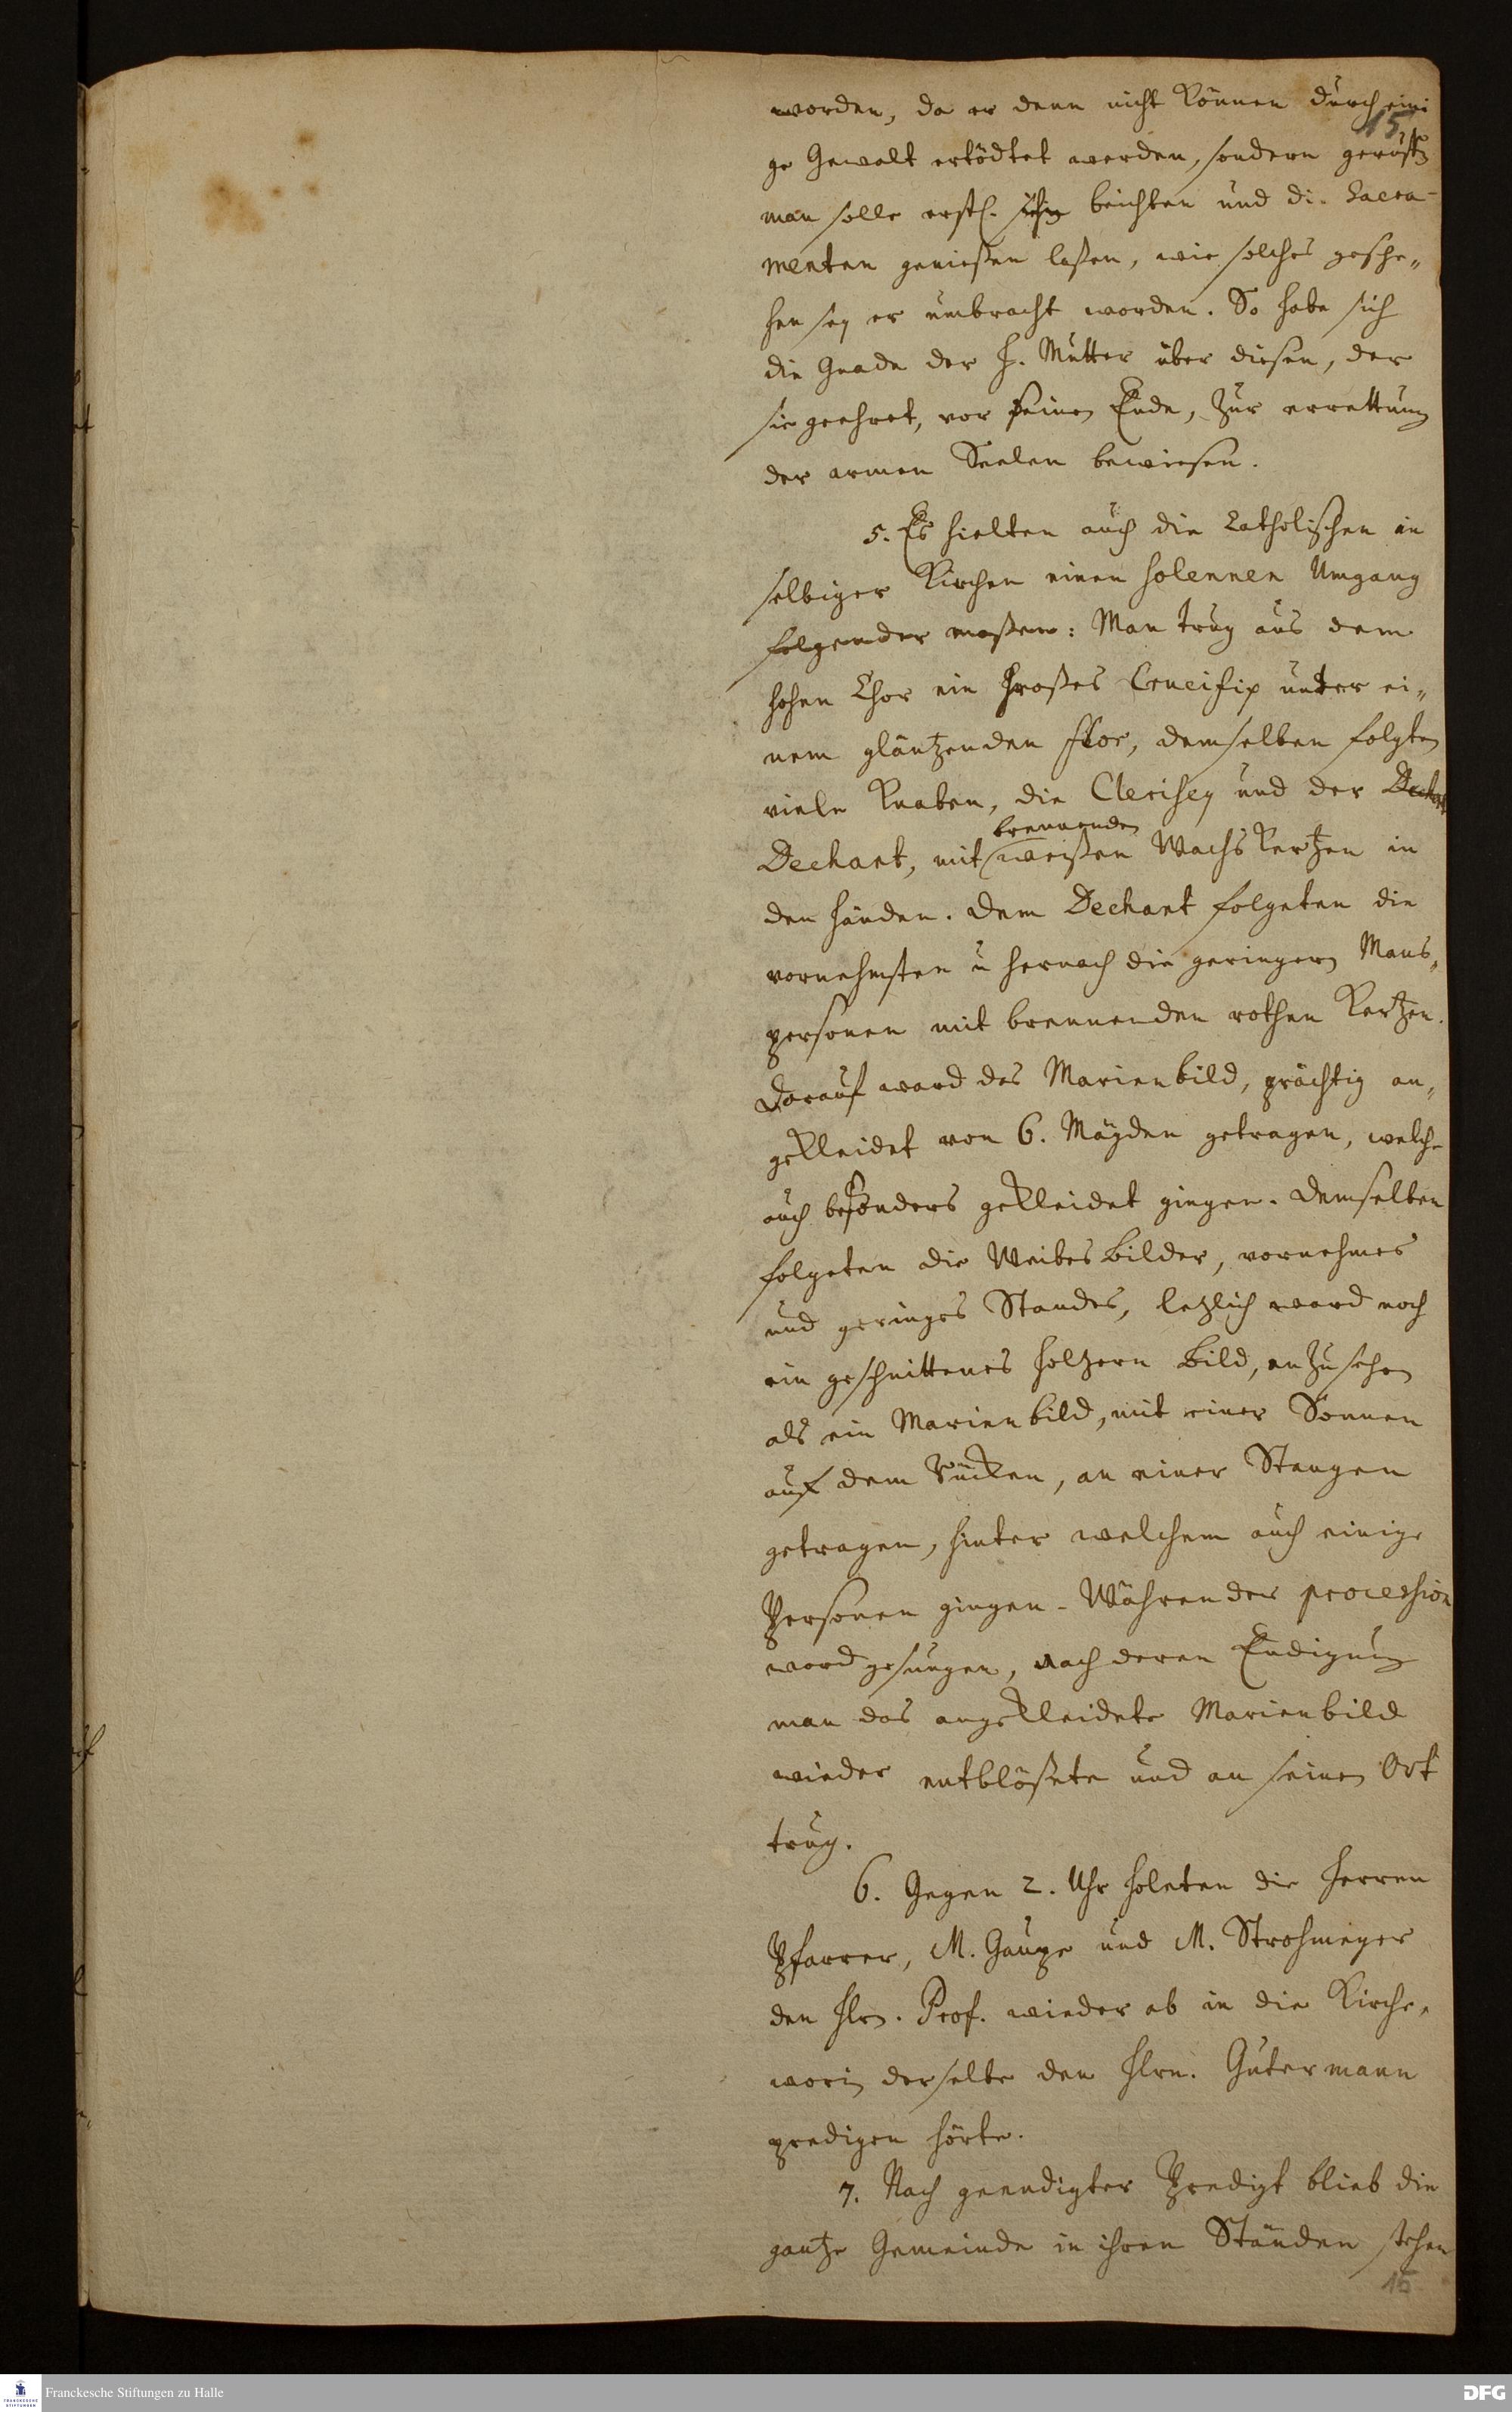 worden, da er denn nicht können durch eini
15
ge Gewalt ertödtet werden, sondern geruffen
man solle erstl. ihn beichten und di. Sacra-
menten geniessen lassen, wie solches gesche„
hen sey er umbracht worden. So habe sich
die Gnade der H. Mutter über diesen, der
sie geehret, vor seinen Ende, zur errettung
der armen Seelen bewiesen.
5. Es hielten auch die Catholischen in
selbiger Kirchen einen solennen Umgang
folgender massen: Man trug aus dem
hohen Chor ein grosses Crucifix unter ei„
nem gläntzenden Flor, demselben folgten
viele Knaben, die Clerisey und der Dechant
brennenden
Dechant, mit weissen Wachskertzen in
den händen. dem Dechant folgeten die
vornehmsten u hernach die geringern Mans„
personen mit brennenden rothen Kertzen.
Darauf ward das Marienbild, prächtig an„
gekleidet von 6. Mägden getragen, welche
auch besonders gekleidet gingen. demselben
folgeten die Weibesbilder, vornehmes
und geringes Standes, letzlich ward noch
ein geschnittenes holzern Bild, anzusehen
als ein Marienbild, mit einer Sonnen
auf dem Rücken, an einer Stangen
getragen, hinter welchem auch einige
Personen gingen. Währender procession
ward gesungen, nach deren Endigung
man das angekleidete Marienbild
wieder entblössete und an seinen Ort
trug.
6. Gegen 2. Uhr holeten die Herren
Pfarrer, M. Gaupp und M. Strohmeyer
den Hrn. Prof. wieder ab in die Kirche,
worin derselbe den Hrn. Gutermann
predigen hörte.
7. Nach geendigter Predigt blieb die
gantze Gemeinde in ihren Ständen stehen
15
Franckesche Stiftungen zu Halle
DFG